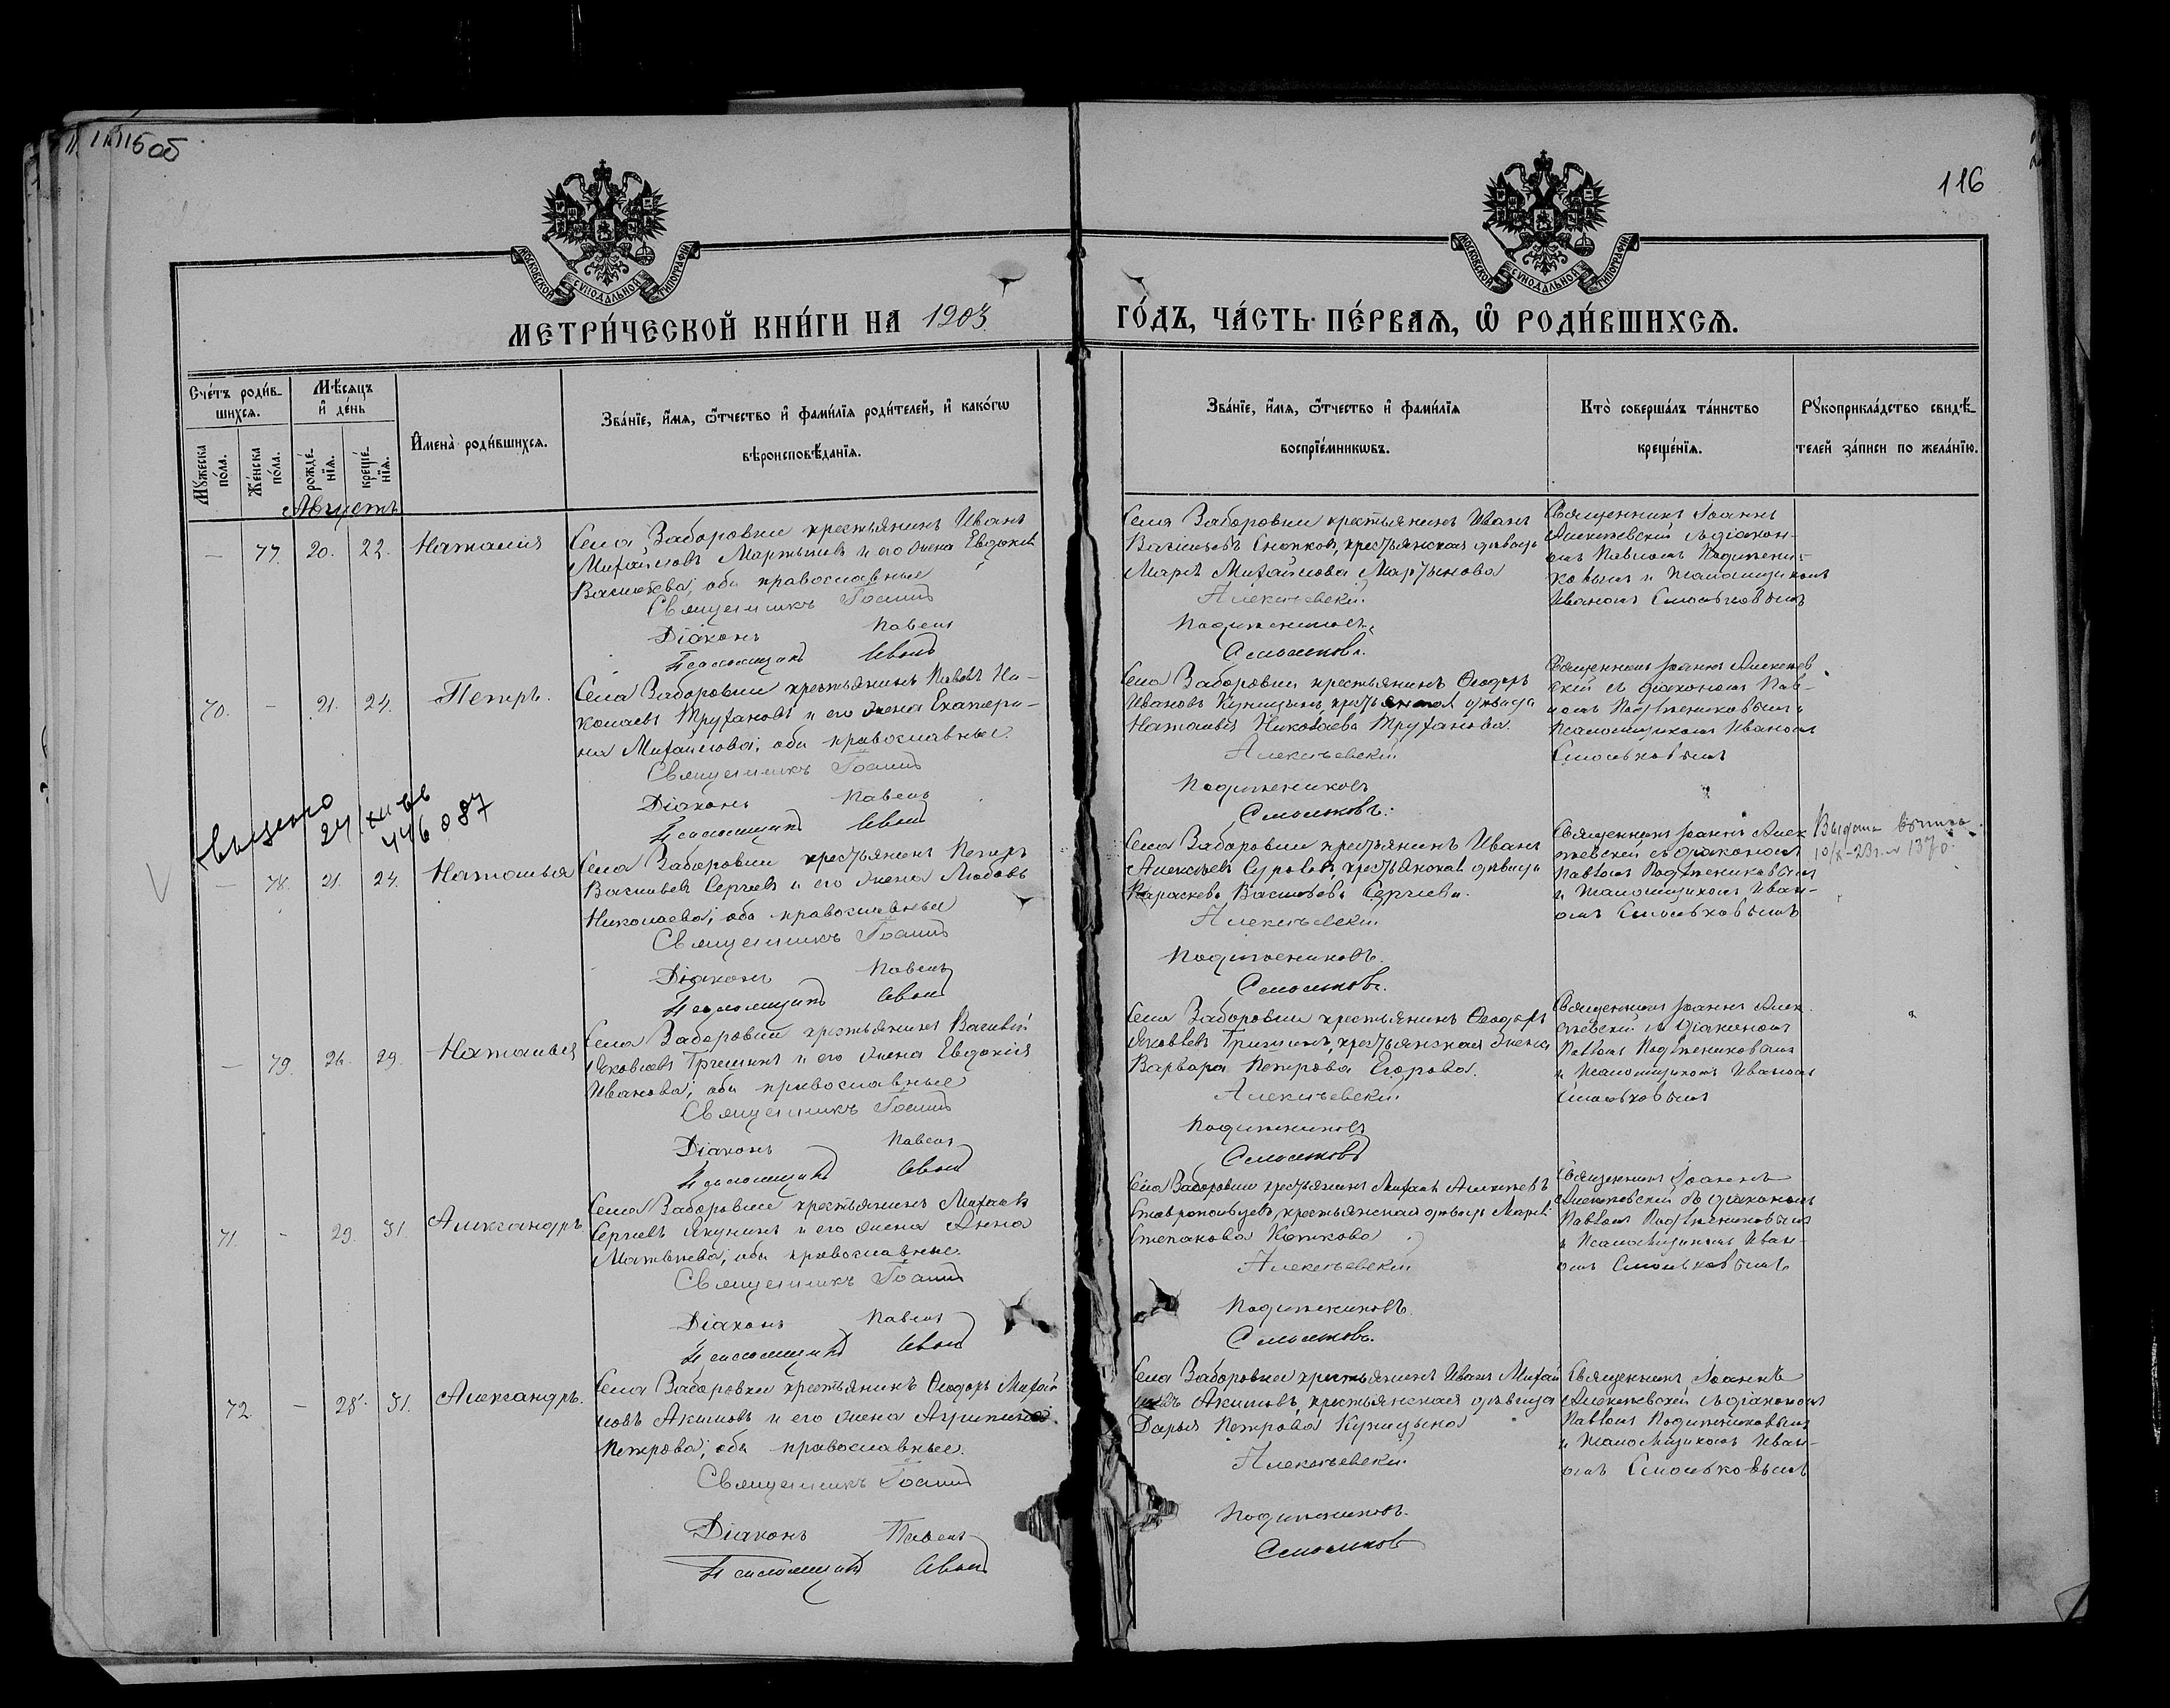 115об
116
МОСКОВСКОЙ СУНОДАЛЬНОЙ ТИПОГРАФІИ
МОСКОВСКОЙ СУНОДАЛЬНОЙ ТИПОГРАФІИ
МЕТРИ́ЧЕСКОЙ КНИ́ГИ НА 1903
ГО́ДЪ, ЧА́СТЬ ПЕ́РВАѦ, Ѡ҆ РОДИ́ВШИХСѦ.
Сче́тъ роди́в-
шихсѧ.
Мꙋ́жеска по́ла.
Же́нска по́ла.
Мѣ́сѧцъ
и҆ де́нь
рожде́-нїѧ.
креще́-нїѧ.
И҆мена̀ роди́вшихсѧ.
Зва́нїе, и҆́мѧ, ѻ҆́тчество и҆ фами́лїѧ роди́телей, и҆ како́гѡ
вѣроисповѣ́данїѧ.
Зва́нїе, и҆́мѧ, ѻ҆́тчество и҆ фами́лїѧ
воспрїе́мникѡвъ.
Кто̀ соверша́лъ та́инство
креще́нїѧ.
Рꙋкоприкла́дство свидѣ́-
телей за́писи по жела́нїю.
Августъ
— 77. 20. 22. Наталія
Села Заборовки крестьянинъ Иванъ
Михайловъ Мартыновъ и его жена Евдокія
Васильева; оба православные
Священникъ Іоаннъ
Діаконъ Павелъ
Псаломщикъ Иванъ
Села Заборовки крестьянинъ Иванъ
Васильевъ Снопковъ, крестьянская дѣвица
Марія Михайлова Мартынова
Алексѣевскій
Смольковъ.
Священникъ Іоаннъ
Алексѣевскій съ діакон-
омъ Павломъ
и псаломщикомъ
Иваномъ Смольковымъ
70. - 21. 24. Петръ.
Села Заборовки крестьянинъ Павелъ Ни-
колаевъ Труфановъ и его жена Екатери-
на Михайлова; оба православные.
Священникъ Іоаннъ
Діаконъ Павелъ
Псаломщикъ Иванъ
Села Заборовки крестьянинъ Ѳеодоръ
Ивановъ Куницынъ, крестьянская дѣвица
Наталья Николаева Труфанова.
Алексѣевскій
Смольковъ.
Священникъ Іоаннъ Алексѣев
скій съ діакономъ Пав-
ломъ
псаломщикомъ Иваномъ
Смольковымъ
446087
— 78. 21. 24. Наталья
Села Заборовки крестьянинъ Петръ
Васильевъ Сергѣевъ и его жена Любовь
Николаева; оба православные
Священникъ Іоаннъ
Діаконъ Павелъ
Псаломщикъ Иванъ
Села Заборовки крестьянинъ Иванъ
Алексѣевъ Суровъ, крестьянская дѣвица
Параскева Васильева Сергѣева.
Алексѣевскій
Смольковъ.
Священникъ Іоаннъ Алек
сѣевскій съ діакономъ
Павломъ
и псаломщикомъ Иван-
омъ Смольковымъ
Выдана
— 79. 26. 29. Наталья
Села Заборовки крестьянинъ Василій
Яковлевъ Гришинъ и его жена Евдокія
Иванова; оба православные
Священникъ Іоаннъ
Діаконъ Павелъ
Псаломщикъ Иванъ
Села Заборовки крестьянинъ Ѳеодоръ
Яковлевъ Гришинъ, крестьянская жена
Варвара Петрова Егорова.
Алексѣевскій
Смольковъ
Священникъ Іоаннъ Алек
сѣевскій съ діакономъ
Павломъ
и псаломщикомъ Иваномъ
Смольковымъ
71. - 29. 31. Александръ
Села Заборовки крестьянинъ Михаилъ
Сергѣевъ Якунинъ и его жена Анна
Матвѣева; оба православные.
Священникъ Іоаннъ
Діаконъ Павелъ
Псаломщикъ Иванъ
Села Заборовки крестьянинъ Михаилъ Алексѣевъ
Ставропольцевъ, крестьянская дѣвица Марія
Степанова Коткова
Алексѣевскій
Смольковъ.
Священникъ Іоаннъ
Алексѣевскій съ діакономъ
Павломъ
и псаломщикомъ Иван-
омъ Смольковымъ
72. — 28. 31. Александръ.
Села Заборовки крестьянинъ Ѳеодоръ Михай
ловъ Акимовъ и его жена Агрипина
Петрова; оба православные.
Священникъ Іоаннъ
Діаконъ Павелъ
Псаломщикъ Иванъ
Села Заборовки крестьянинъ Иванъ Михай
ловъ Акимовъ, крестьянская дѣвица
Дарья Петрова Куницына
Алексѣевскій
Смольковъ
Священникъ Іоаннъ
Алексѣевскій съ діакономъ
Павломъ
и псаломщикомъ Иван-
омъ Смольковымъ